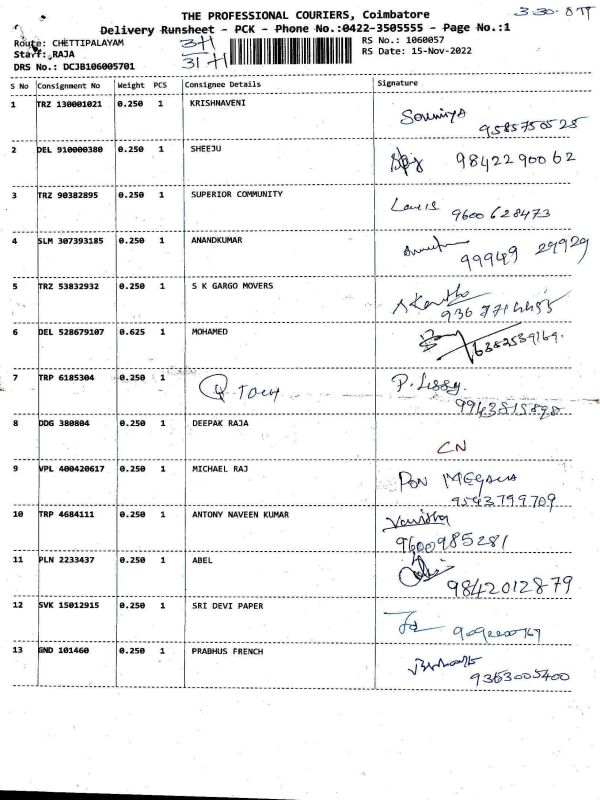 THE PROFESSIONAL COURIERS, Coimbatore
Delivery Runsheet - PCK - Phone No.:0422-3505555 - Page No.:1
Route: CHETTIPALAYAM RS No.: 1060057
Staff: RAJA RS Date: 15-Nov-2022
DRS No.: DCJB106005701
S No Consignment No Weight PCS Consignee Details Signature
1 TRZ 130001021 0.250 1 KRISHNAVENI Soumiya
9585750525
2 DEL 910000380 0.250 1 SHEEJU 9842290062
3 TRZ 90382895 0.250 1 SUPERIOR COMMUNITY Louis 9600628473
4 SLM 307393185 0.250 1 ANANDKUMAR 99949 29929
5 TRZ 53832932 0.250 1 S K GARGO MOVERS
6 DEL 528679107 0.625 1 MOHAMED 6382539169.
7 TRP 6185304 0.250 1 P. Lissy
9943815898
8 DDG 380804 0.250 1 DEEPAK RAJA CN
9 VPL 400420617 0.250 1 MICHAEL RAJ
9543799709
10 TRP 4684111 0.250 1 ANTONY NAVEEN KUMAR
9600985281
11 PLN 2233437 0.250 1 ABEL
9842012879
12 SVK 15012915 0.250 1 SRI DEVI PAPER
13 GND 101460 0.250 1 PRABHUS FRENCH
9363005400